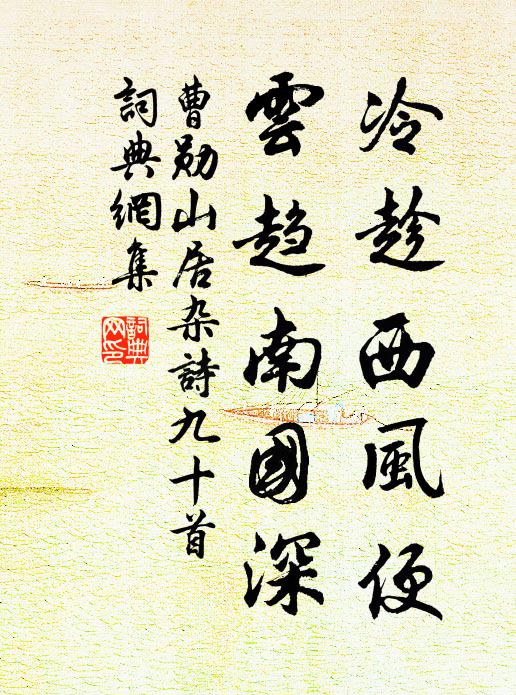 冷趁西風便
雲趨南國深
曹勛山居杂詩九十首
詞典網集
詞典網印